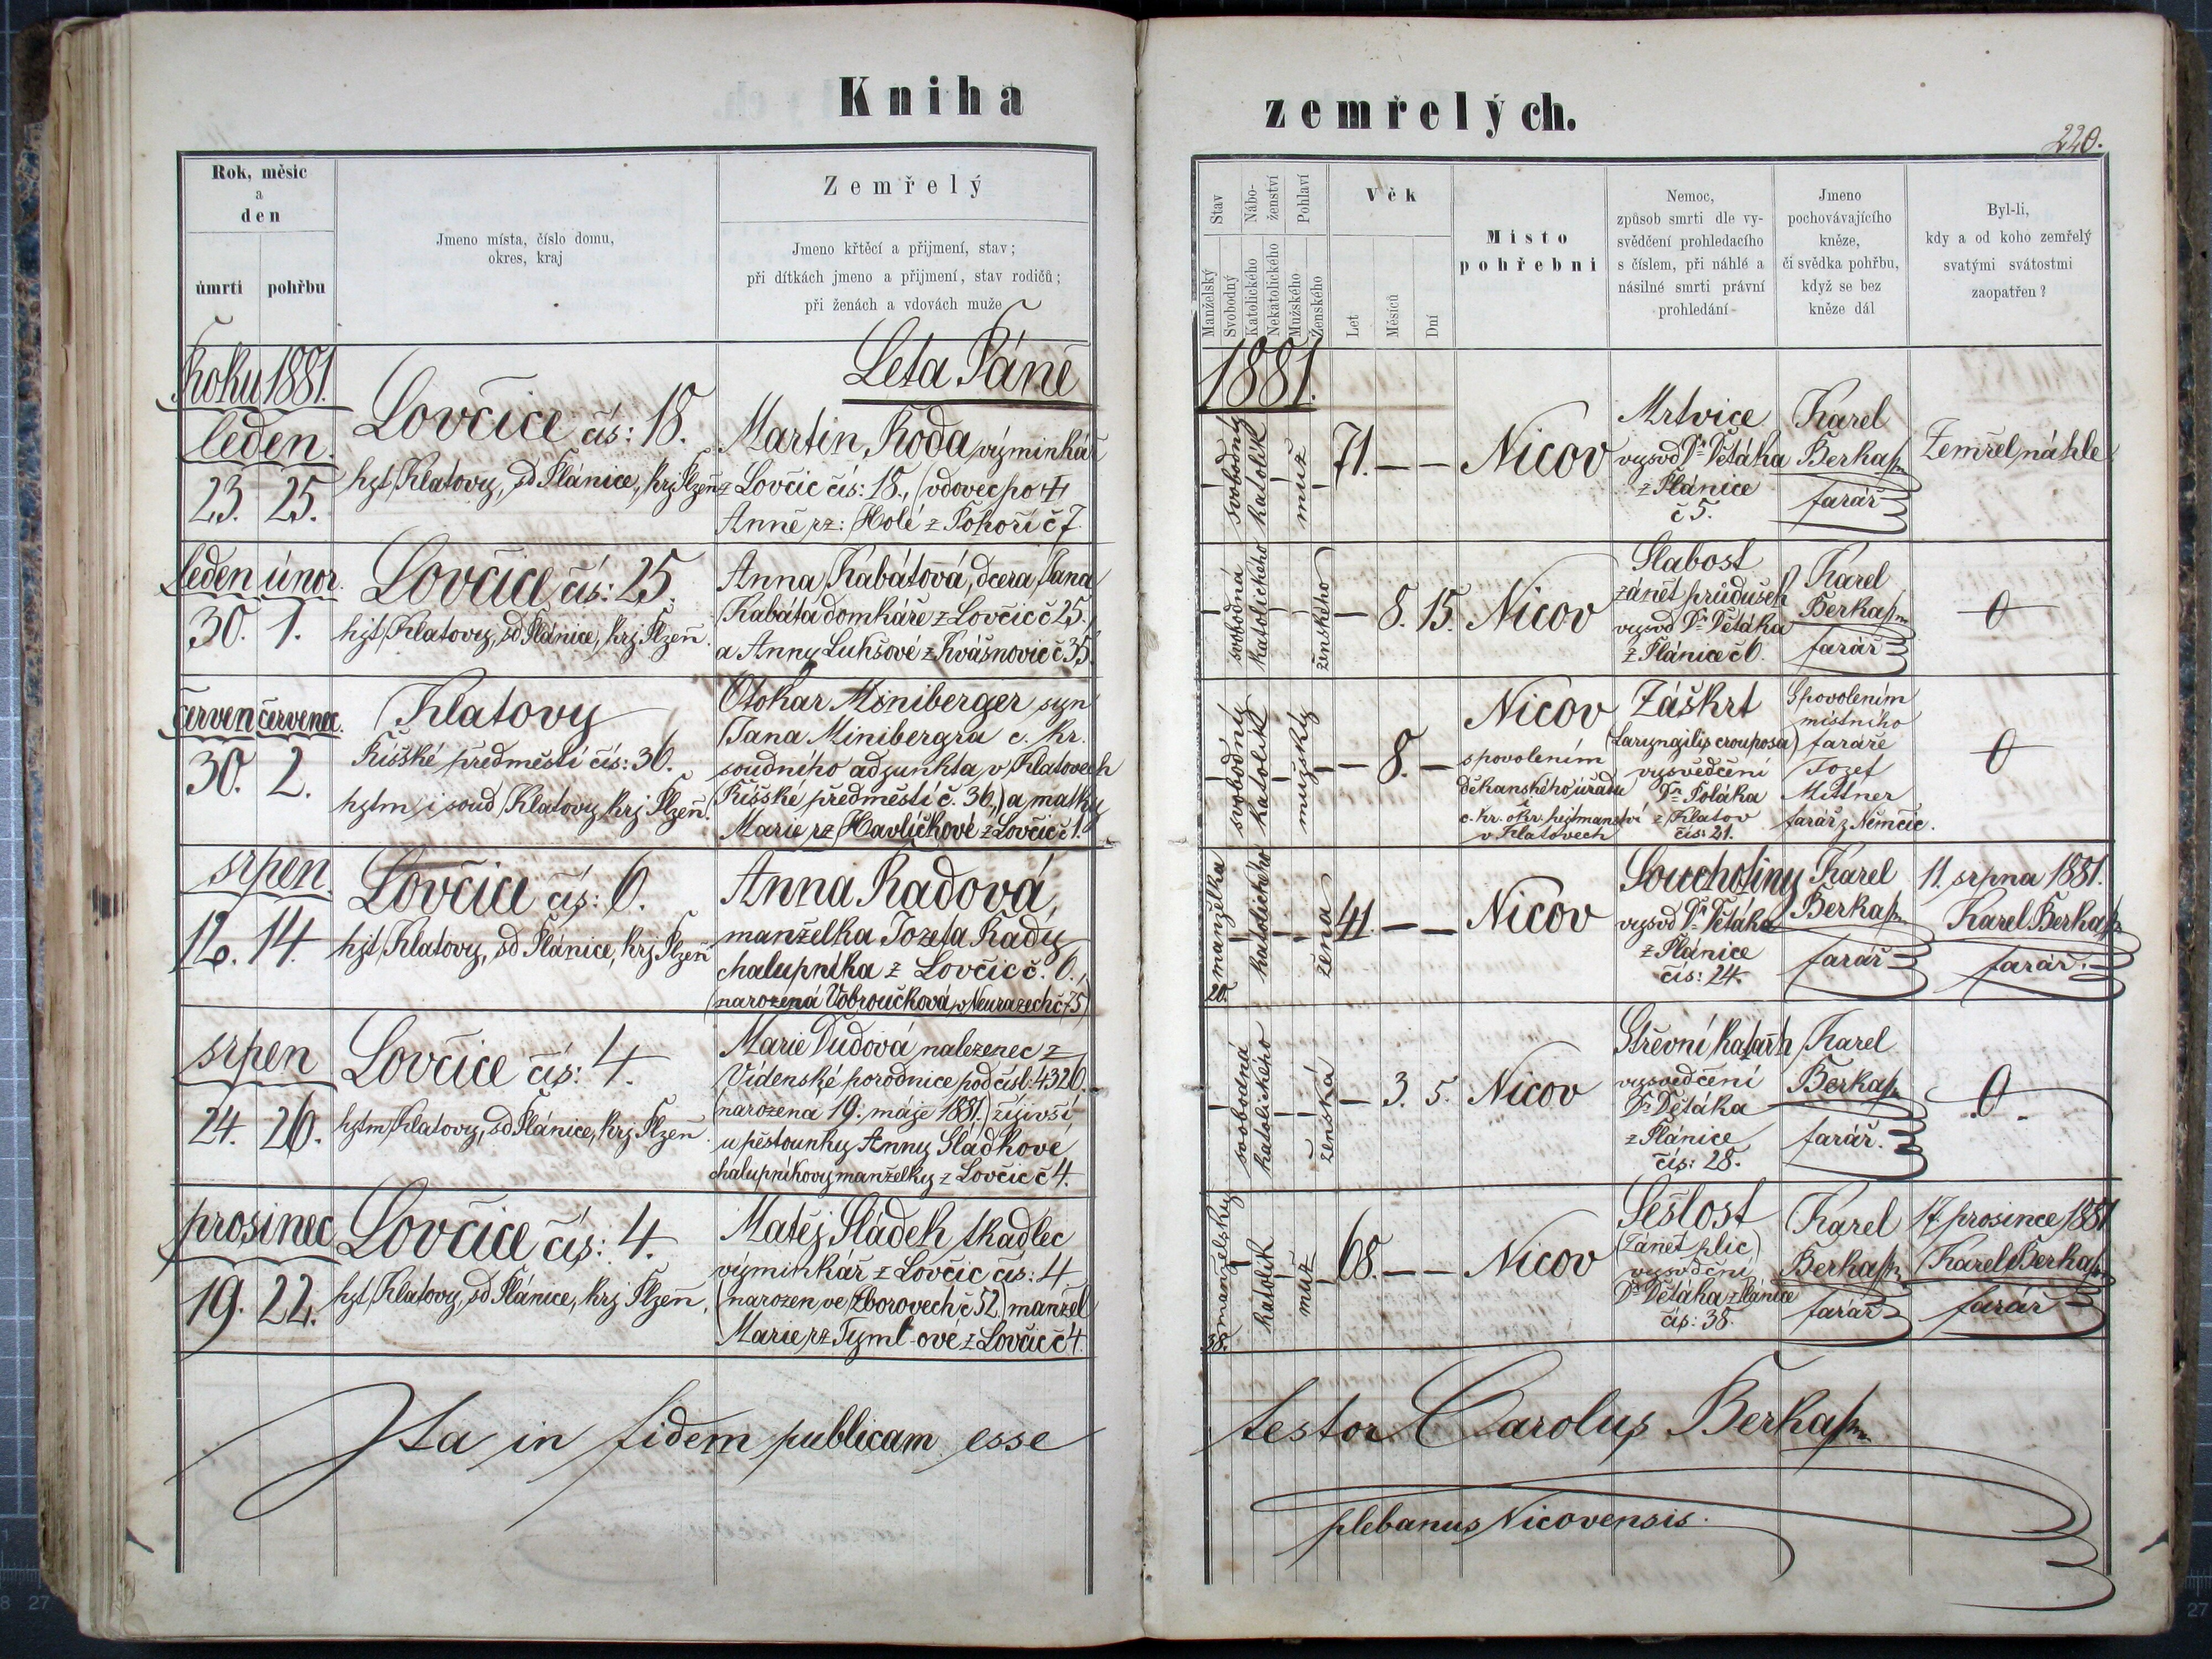 Kniha
zemřelých.
220.
Rok, měsíc
a
den
úmrtí
pohřbu
Jmeno místa, číslo domu,
okres, kraj
Zemřelý
Jmeno křtěcí a přijmení, stav;
při dítkách jmeno a přijmení, stav rodičů;
při ženách a vdovách muže
Stav
Nábo-
ženství
Pohlaví
Manželský
Svobodný
Katolického
Nekatolického
Mužského
Ženského
Věk
Let
Měsíců
Dní
Místo
pohřební
Nemoc,
způsob smrti dle vy-
svědčení prohledacího
s číslem, při náhlé a
násilné smrti právní
prohledání
Jmeno
pochovávajícího
kněze,
čí svědka pohřbu,
když se bez
kněze dál
Byl-li,
kdy a od koho zemřelý
svatými svátostmi
zaopatřen?
Roku 1881.
Leta Páně
1881.
leden.
23. 25.
Lovčice čís: 18.
hgt Klatovy, sd Plánice, krj Plzeň
Martin Roda výminkář
z Lovčic čís: 18., (vdovec po ++
Anně rz: Holé z Pohoří č 7.
svobodný
katolík
muž
71. — —
Nicov
Mrtvice
vysvd Dr Dětáka
z Plánice
č 5.
Karel
Berka
farář
Zemřel náhle
leden únor.
30. 1.
Lovčice čís: 25.
hjt Klatovy, sd Plánice, krj Plzeň.
Anna Kabátová, dcera Jana
Kabáta domkáře z Lovčic č 25.
a Anny Lukšové z Kvášnovic č 35
svobodná
katolického
ženského
— 8. 15.
Nicov
Slabost
zánět průdušek
vysvd Dr Dětáka
z Plánice č 6.
Karel
Berka
farář
0
červen červenec.
30. 2.
Klatovy
Říšské předměstí čís: 36.
hytm i soud Klatovy, krj Plzeň.
Otokar Miniberger syn
Jana Minibergra c. kr.
soudního adjunkta v Klatovech
(Říšské předměstí č. 36.,) a matky
Marie rz Havlíčkové z Lovčic č 1.
svobodný
katolík
mužský
— 8. —
Nicov
s povolením
děkanského úřadu
i
c. kr. okr. hejtmanství
v Klatovech
Záškrt
(Laryngitis crouposa)
vysvědčení
Dr Poláka
z Klatov
čís: 21.
S povolením
místního
faráře
Jozef
Mittner
farář z Němčic.
0
srpen.
12. 14.
Lovčice čís: 6.
hjt Klatovy, sd Plánice, krj Plzeň
Anna Radová,
manželka Jozefa Rady
chalupníka z Lovčic č. 6.,
(narozená Vobroučková v Neurazech č 75)
manželka
20.
katolického
žena
41. — —
Nicov
Souchotiny
vysvd Dr Dětáka
z Plánice
čís: 24.
Karel
Berka
farář
11. srpna 1881.
Karel Berka
farář.
srpen
24. 26.
Lovčice čís: 4.
hytm Klatovy, sd Plánice, krj Plzeň.
Marie Dudová nalezenec z
Vídenské porodnice pod čísl: 4326.
(narozena 19. máje 1881.) žijivší
u pěstounky Anny Sládkové,
chalupníkovy manželky z Lovčic č 4.
svobodná
katolického
ženská
— 3. 5.
Nicov
Střevní katarrh
vysvedčení
Dr Dětáka
z Plánice
čís: 28.
Karel
Berka
farář.
0.
prosinec
19. 22.
Lovčice čís: 4.
hjt Klatovy, sd Plánice, krj Plzeň.
Matěj Sládek tkadlec
výminkář z Lovčic čís: 4.
(narozen ve Zborovech č 52) manžel
Marie rz Tymlové z Lovčic č 4.
manželský
38.
katolík
muž
68. — —
Nicov
Sešlost
(Zánět plic,)
vysvdční
Dr Dětáka z Plánice
čís: 38.
Karel
Berka
farář
17. prosince 1881
Karel Berka
farář
Ita in fidem publicam esse
testor Carolus Berka
plebanus Nicovensis.